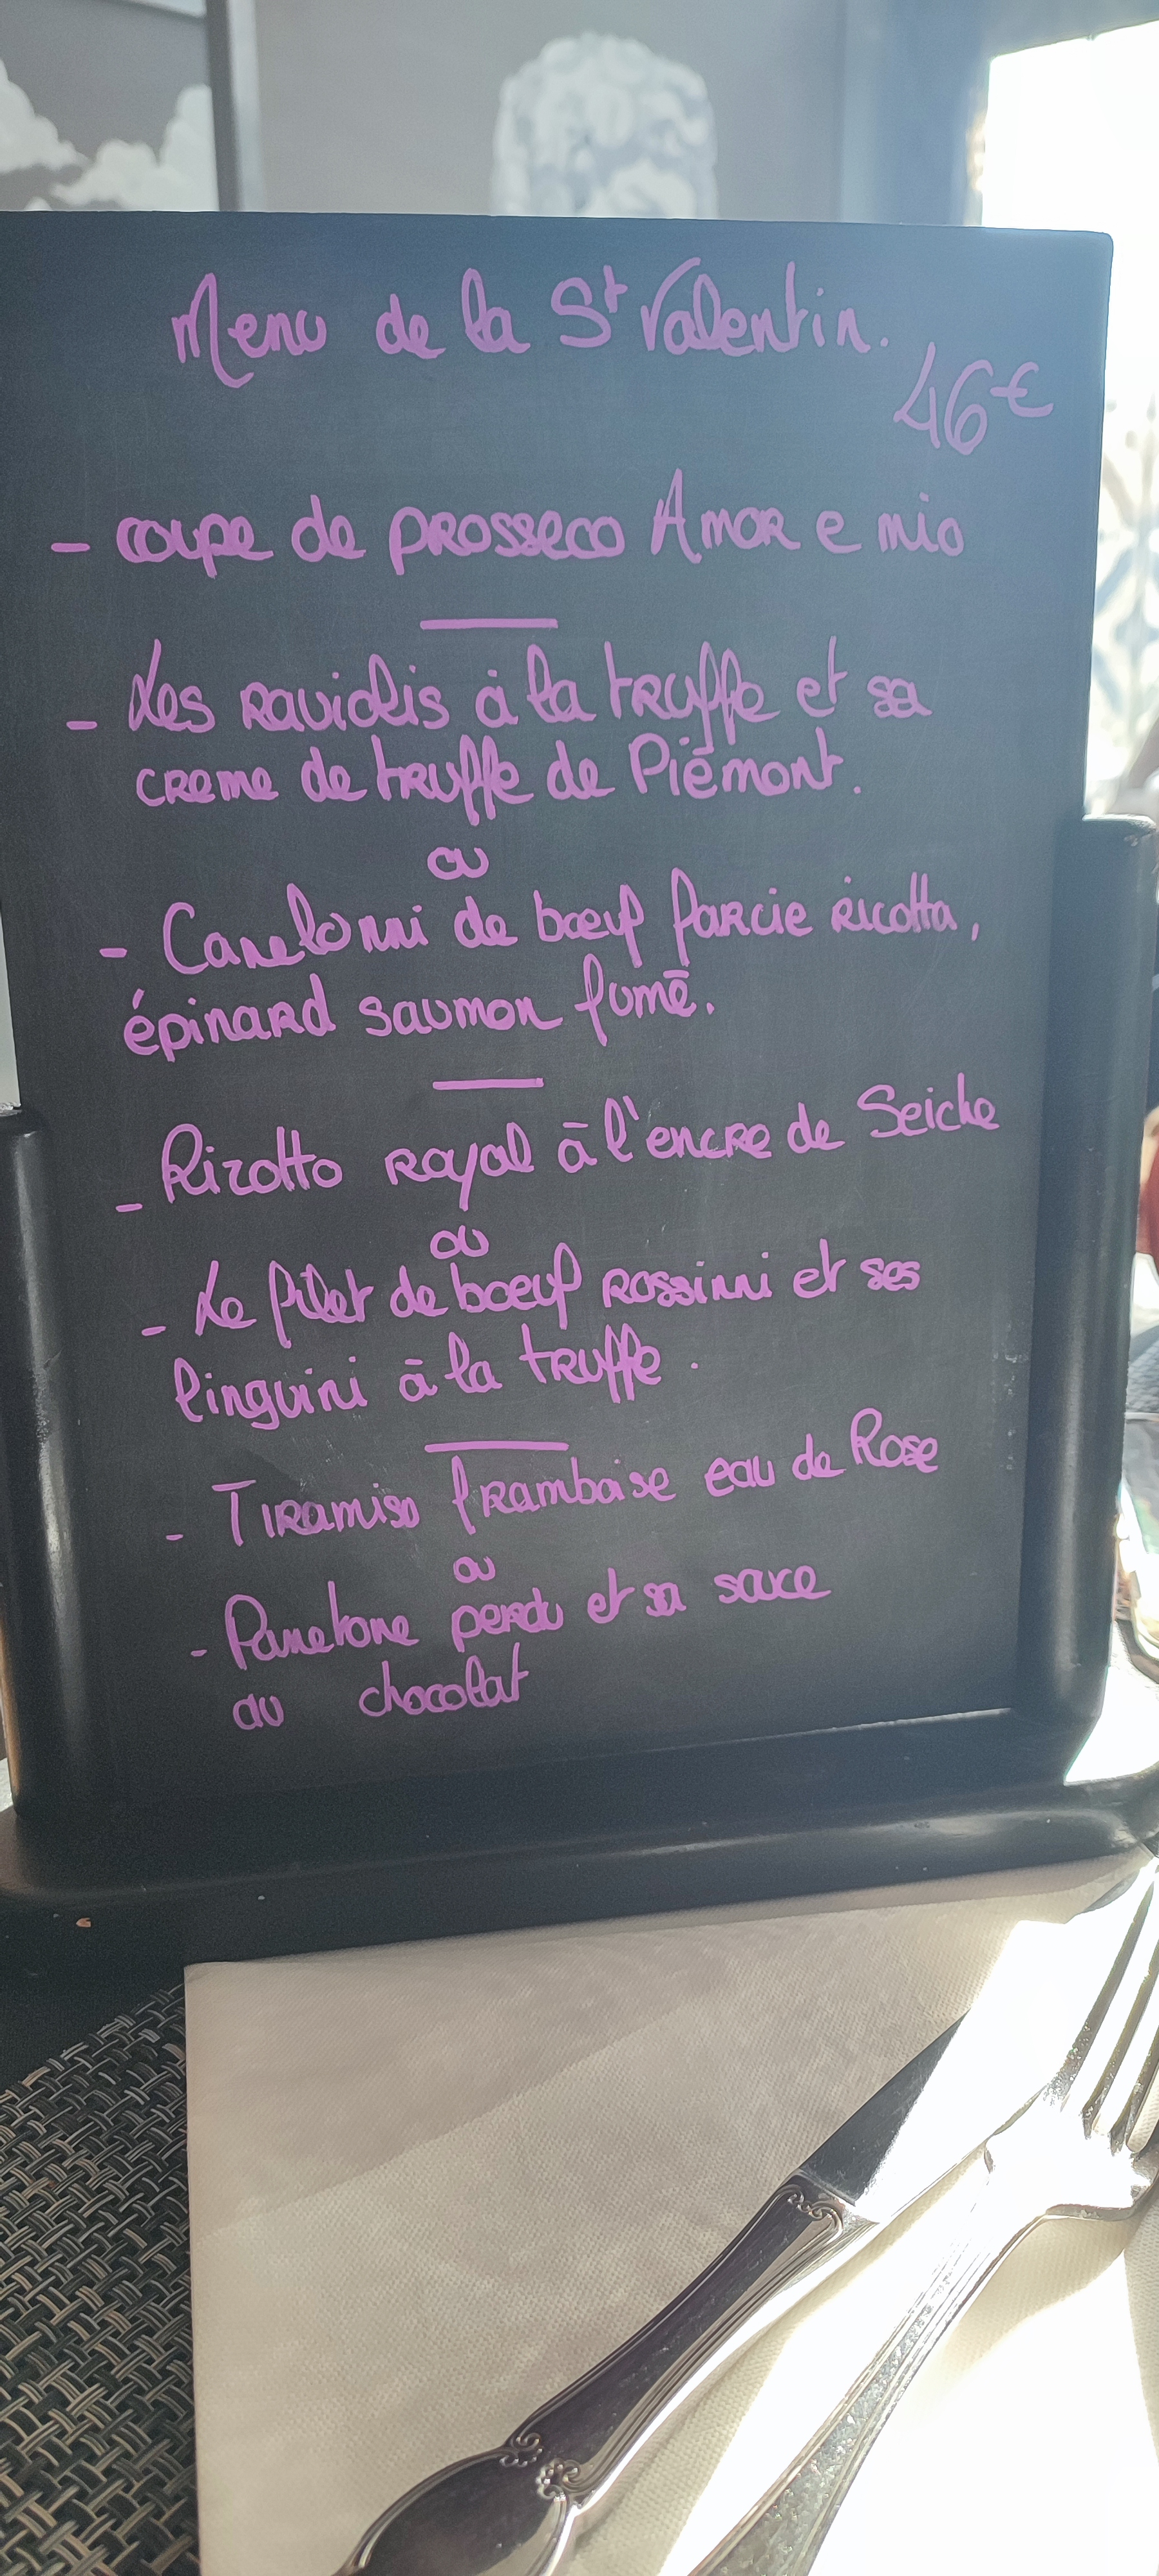 Menu de la St Valentin.
46€
- coupe de prosseco Amor e mio
- Les raviolis à la truffe et sa
creme de truffe de Piémont.
ou
- Canelonni de bœuf farcie ricotta,
épinard saumon fumé.
- Rizotto royal à l'encre de Seiche
ou
- Le filet de boeuf rossinni et ses
linguini à la truffe.
- Tiramisu framboise eau de Rose
ou
- Panetone perdu et sa sauce
au chocolat